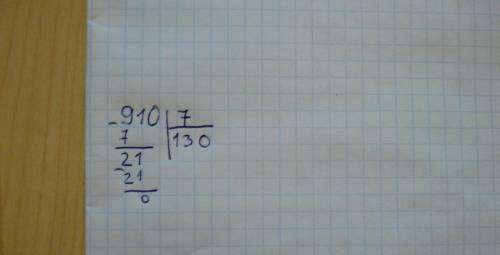 -910 | 7
7 | 130
-21
21
0